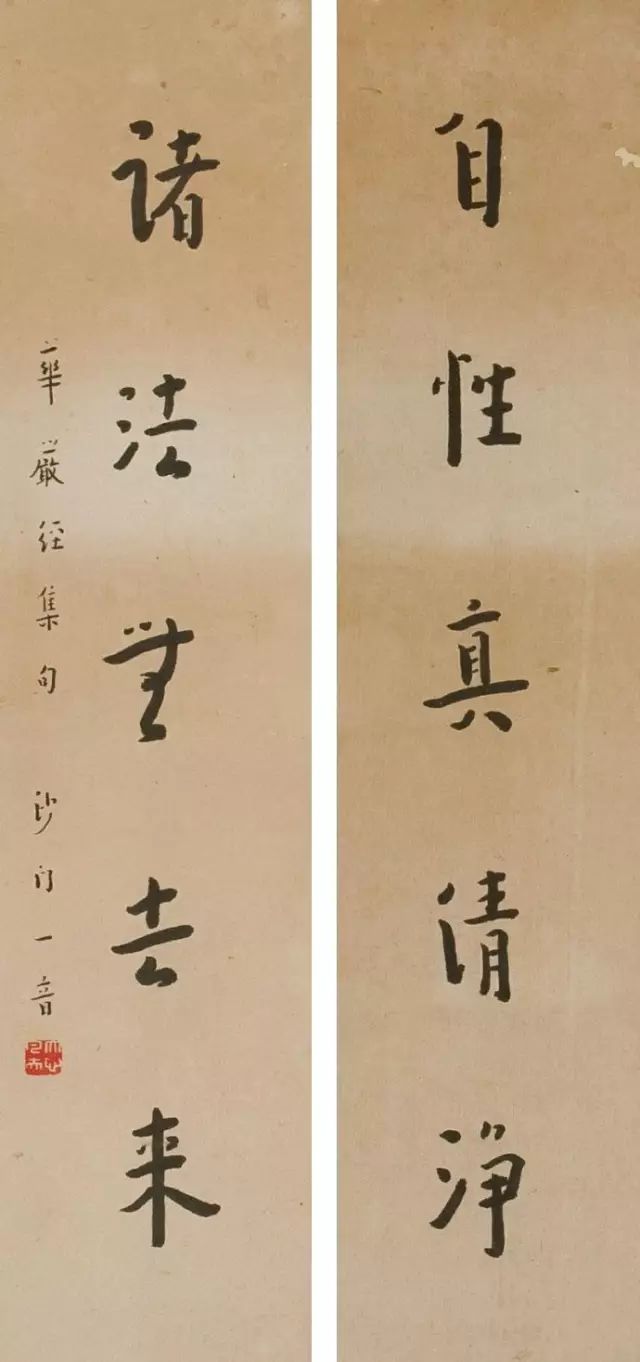 自性真清净
诸法無去来
華嚴经集句 沙门一音